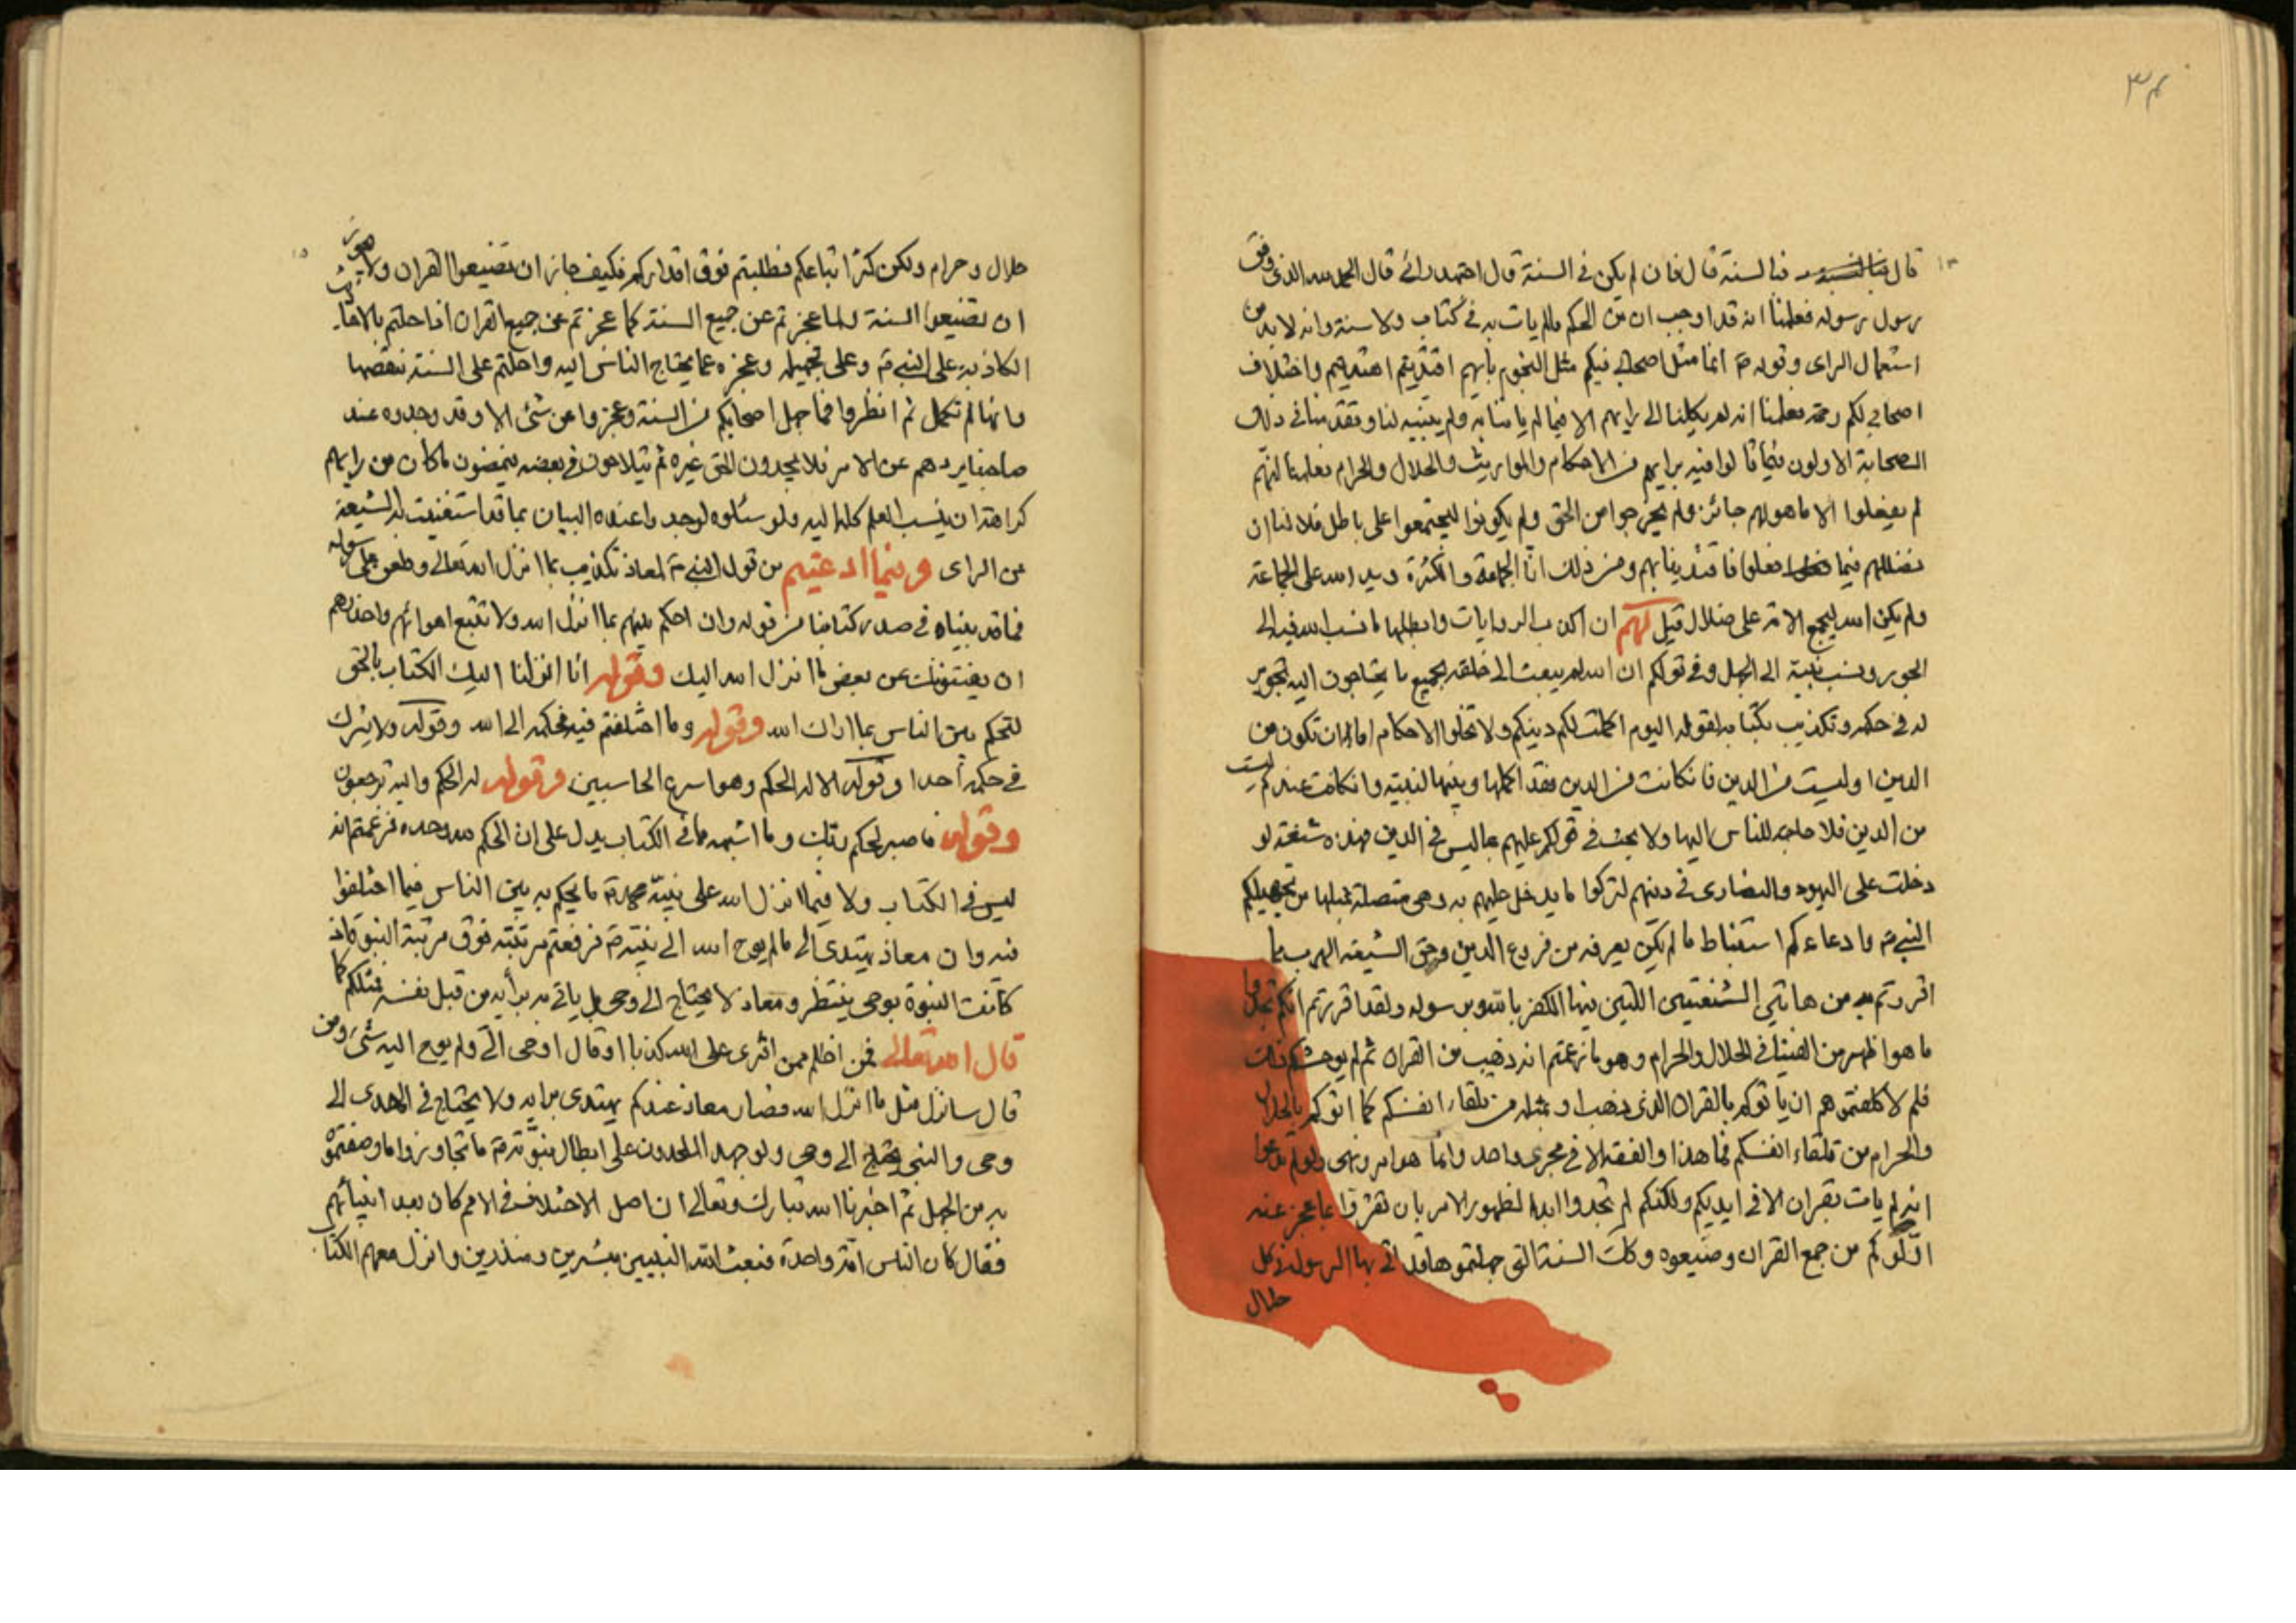 ٣٤
قال فبالسنة قال فان لم يكن في السنة قال اجتهد رائي قال الحمد لله الذي وفق
رسول رسوله فعلمنا انه قد اوجب ان من الحكم ما لم يات به في كتاب ولا سنة وانه لا بد من
استعمال الراى وقوله انما مثل اصحابي فيكم مثل النجوم بايهم اقتديتم اهتديتم واختلاف
اصحابي لكم رحمة فعلمنا انه لم يكلنا الى رايهم الا فيما لم ياتنا به ولم يبينه لنا وتقدمنا في ذلك
الصحابة الاولون فيما قالوا فيه برايهم من الاحكام والمواريث والحلال والحرام فعلمنا انهم
لم يفعلوا الا ما هو لهم جائز ولم يخرجوا من الحق ولم يكونوا ليجتمعوا على باطل فلا لنا ان
نضللهم فيما فعلوا فاقتدينا بهم ومن ذلك انا الجماعة والكثرة ويد الله على الجماعة
ولم يكن الله ليجمع الامة على ضلال قيل لهم ان اكذب الروايات وابطلها ما نسب الله فيه الى
الجور ونسب نبيه الى الجهل وفي قولكم ان الله لم يبعث الى خلقه بجميع ما يحتاجون اليه تجوير
له في حكمه وتكذيب بكتابه لقوله اليوم اكملت لكم دينكم ولا تخلو الاحكام اما ان تكون من
الدين او ليست من الدين فان كانت من الدين فقد اكملها وبينها لنبيه وان كانت عندكم ليست
من الدين فلا حاجة للناس اليها ولا يجب في قولكم عليهم بما ليس في الدين فهذه شنعة لو
دخلت على اليهود والنصارى في دينهم لتركوا ما يدخل عليهم به وهي متصلة بمثلها من تجهيلكم
النبي وادعاءكم استنباط ما لم يكن يعرفه من فروع الدين وحق الشيعة الهرب مما
اقررتم به من هاتين الشنعتين اللتين فيهما الكفر بالله وبرسوله ولقد اقررتم انكم
ما هو اظهر من الفتيا في الحلال والحرام وهو ما زعمتم انه ذهب من القران ثم لم يوحشكم ذلك
فلم لا كلفتموهم ان ياتوكم بالقران الذي ذهب او بمثله من تلقاء انفسكم كما اتوكم بالحلال
والحرام من تلقاء انفسكم فما هذا والفقه الا في مجرى واحد وانما هو امر ونهي
انه لم يات بقران الا في ايديكم ولكنكم لم تجدوا ابدا لظهور الامر بان تقرقوا بما عجز عنه
من جمع القران وضيعوه وكذلك السنة التي جهلتموها قد اتى بها الرسول في كل
حلال
حلال وحرام ولكن كثر اتباعكم فطلبتم فوق اقداركم فكيف جاز ان تضيعوا القران ولا يجوز
ان تضيعوا السنة لما عجزتم عن جميع السنة كما عجزتم عن جميع القران احلتم
الكاذبة على النبي وعلى تجهيله وعجزه عما يحتاج الناس اليه واحلتم على السنة بنقصها
وانها لم تكمل ثم انظروا فما جهل اصحابكم من السنة وعجزوا عن شئ الا وقد وجدوه عند
صاحبنا يردهم عن الامر فلا يجدون الحق غيره ثم يتلاحون في بعضه ينقضون ما كان من رايهم
كراهة ان ينسب العلم كله اليه ولو سئلوه لوجدوا عنده البيان بما قد استغنت به الشيعة
عن الراى وفيما ادعيتم من قول النبي لمعاذ تكذيب بما انزل الله تعالى وطعن على رسوله
فما قد بيناه في صدر كتابنا من قوله وان احكم بينهم بما انزل الله ولا تتبع اهوائهم واحذرهم
ان يفتنوك عن بعض ما انزل الله اليك وقوله انا انزلنا اليك الكتاب بالحق
لتحكم بين الناس بما اراك الله وقوله وما اختلفتم فيه فحكمه الى الله وقوله ولا يشرك
في حكمه احدا وقوله الا له الحكم وهو اسرع الحاسبين وقوله له الحكم واليه ترجعون
وقوله فاصبر لحكم ربك وما اشبهه مما في الكتاب يدل على ان الحكم لله وحده فزعمتم انه
ليس في الكتاب ولا فيما انزل الله على نبيه محمد ما يحكم به بين الناس فيما اختلفوا
فيه وان معاذ يهتدى الى ما لم يوح الله الى نبيه فرفعتم مرتبته فوق مرتبة النبوة اذ
كانت النبوة بوحي ينتظر ومعاذ لا يحتاج الى وحي بل ياتي به برأيه من قبل نفسه فمثلكم كما
قال الله تعالى فمن اظلم ممن افترى على الله كذبا او قال اوحى الى ولم يوح اليه شئ ومن
قال سانزل مثل ما انزل الله فصار معاذ عندكم يهتدى برايه ولا يحتاج في الهدى الى
وحي والنبي يحتاج الى وحي ولو جهد الملحدون على ابطال نبوته ما تجاوزوا ما وصفتموه
به من الجهل ثم اخبرنا الله تبارك وتعالى ان اصل الاختلاف في الامم كان بعد انبيائهم
فقال كان الناس امة واحدة فبعث الله النبيين مبشرين ومنذرين وانزل معهم الكتاب